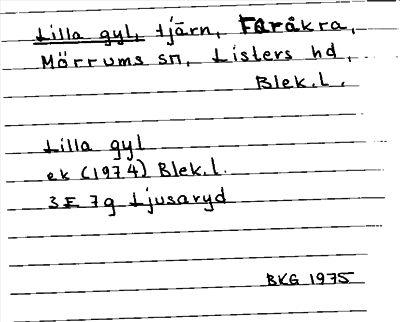 Lilla gyl, tjärn, Faråkra,
Mörrums sn, Listers hd,
Blek.l.
Lilla gyl
ek (1974) Blek.l.
3E 7g Ljusaryd
BKG 1975